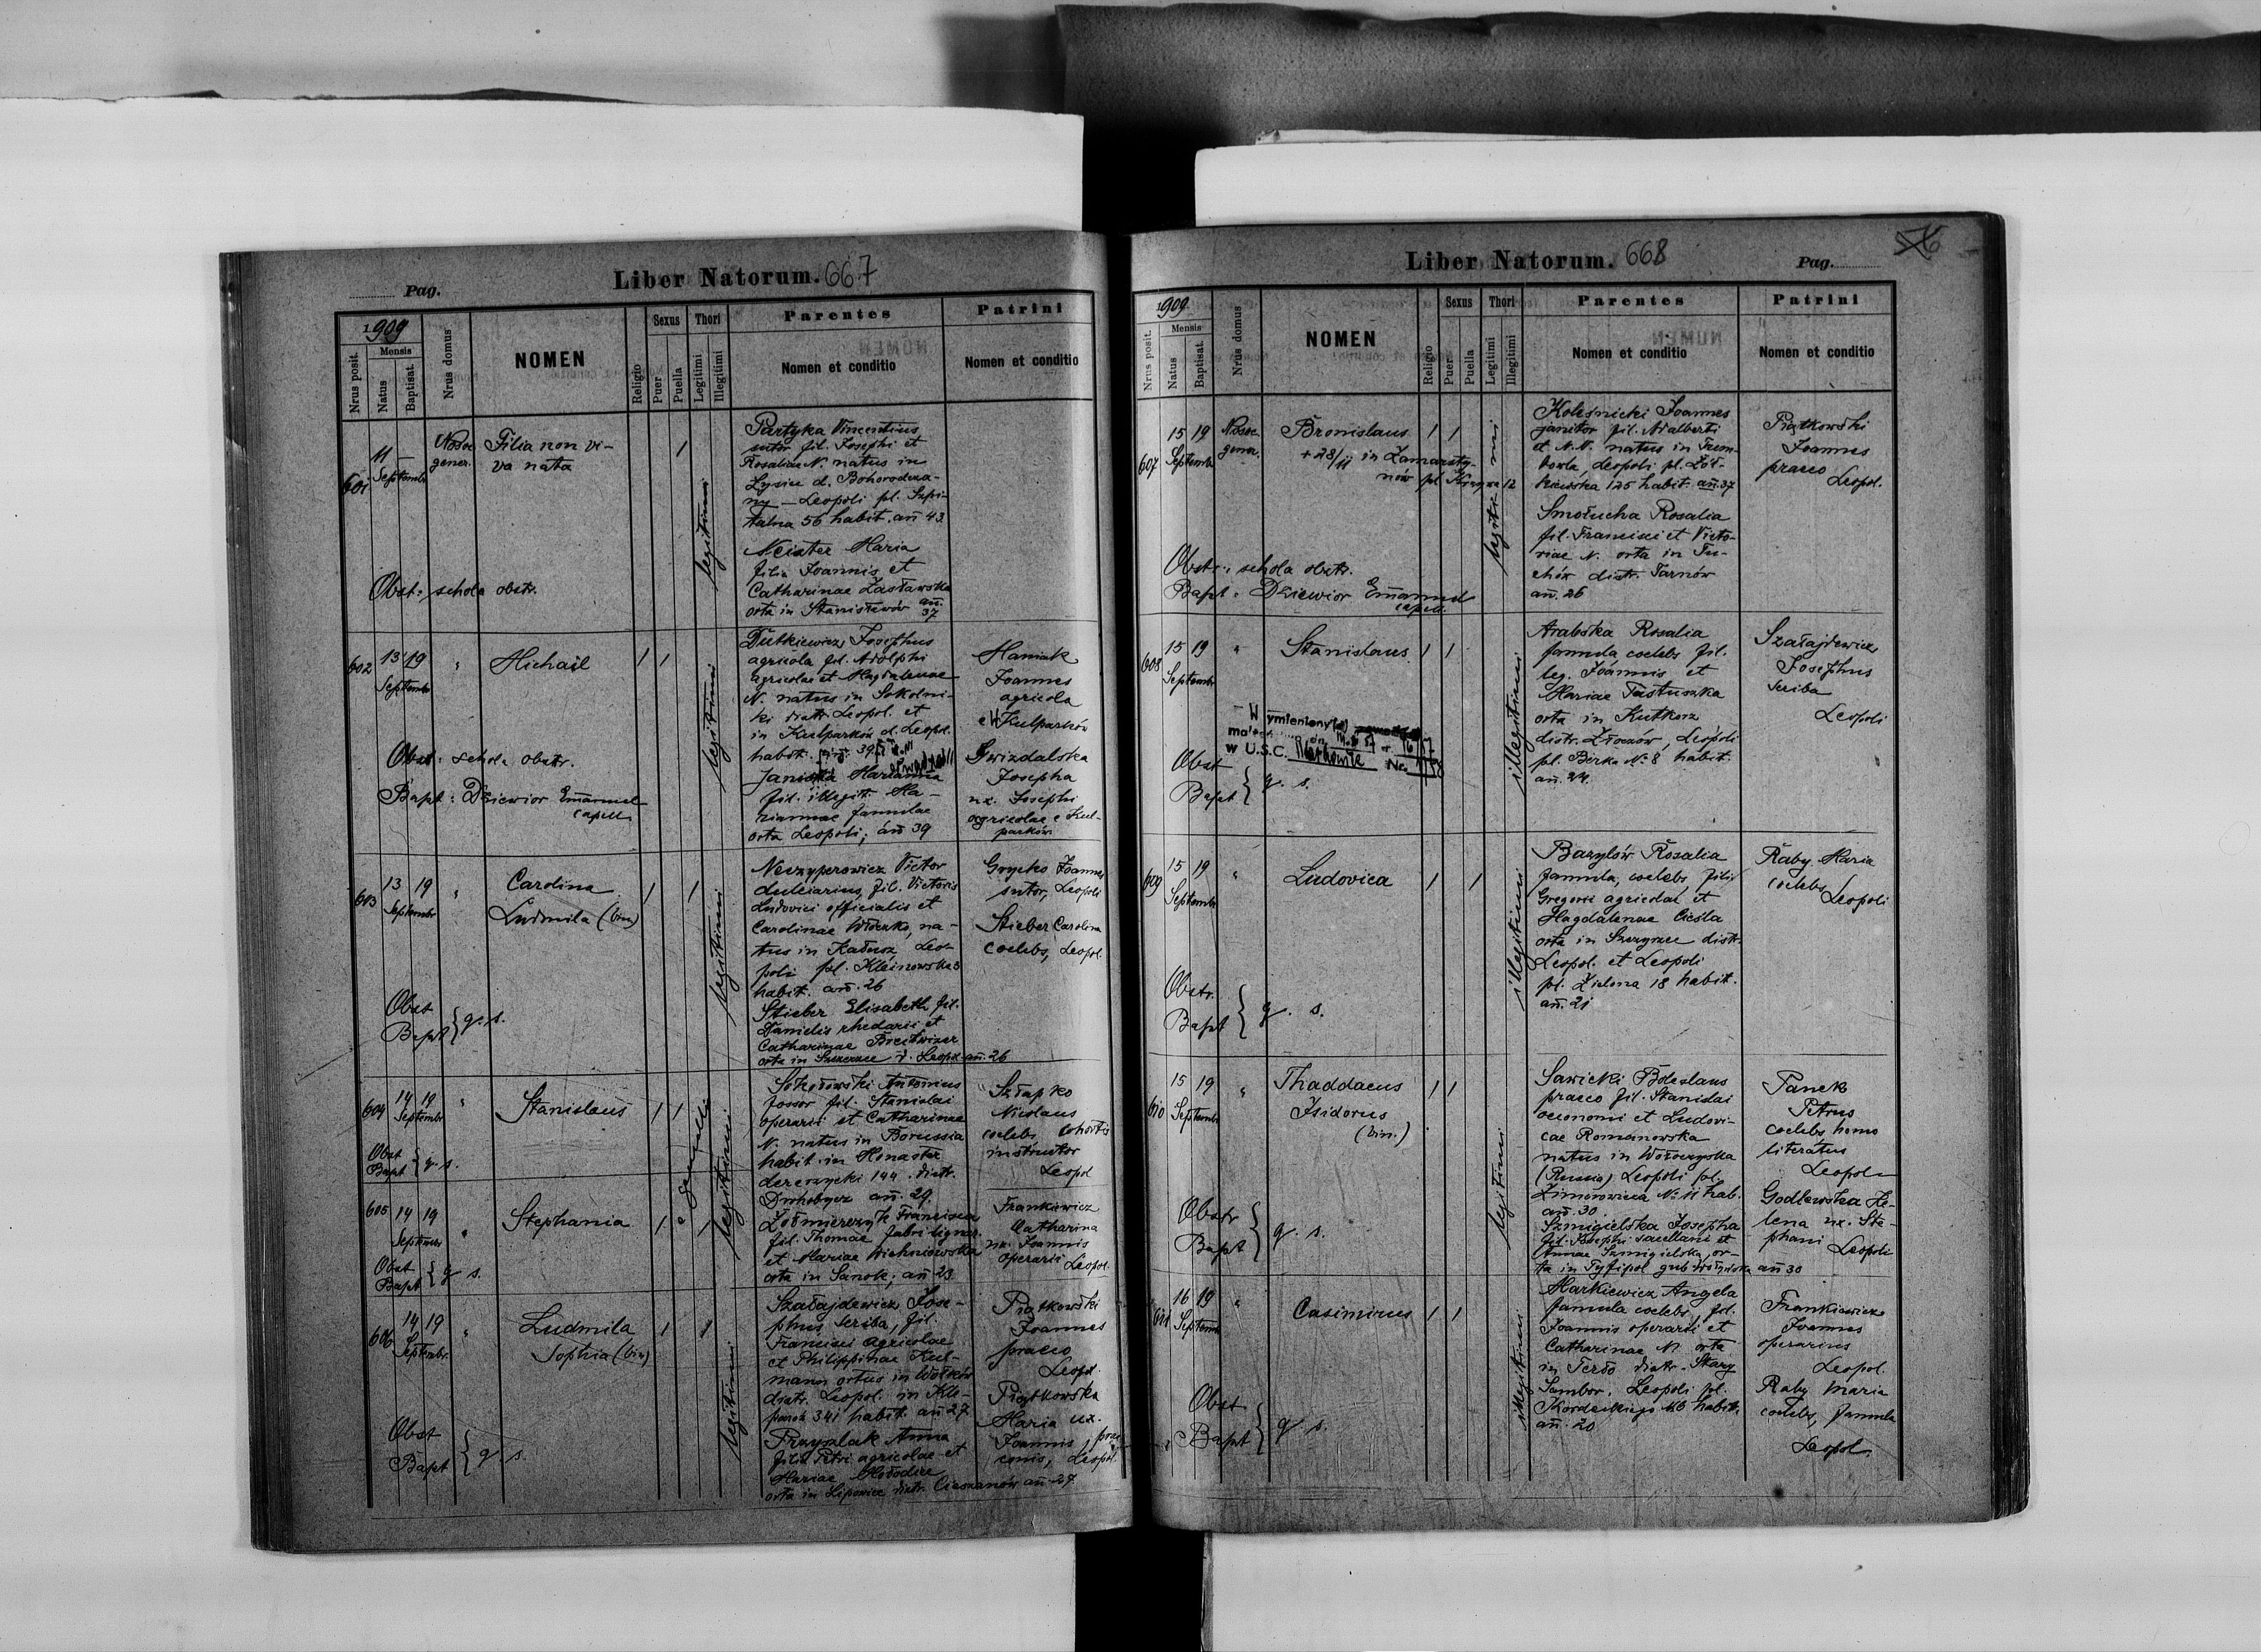 Pag.
Liber Natorum. 667
1909
Nrus posit.
Mensis
Natus
Baptisat.
Nrus domus
NOMEN
Religio
Sexus
Puer
Puella
Thori
Legitimi
Illegitimi
Parentes
Nomen et conditio
Patrini
Nomen et conditio
601
11 —
Septemb
Nosoc
gener.
Filia non vi-
va nata
1
legitimi
Partyka Vincentius
sutor fil. Josephi et
Rosaliae N. natus in
Lysiec d. Bohorodcza-
ny — Leopoli pl. Szpi-
talna 56 habit. añ 43
Meister Maria
filia Joannis et
Catharinae Zasławska
orta in Stanisławów añ.
37
Obst: schola obstr.
602
13 19
Septembr
"
Michaël
1 1
legitimi
Dutkiewicz Josephus
agricola fil. Adolphi
agricolae et Magdalenae
N. natus in Sokolni-
ki distr. Leopol. et
in Kulparków d. Leopol.
habit. 39
Janicka Marianna
fil. illegit. Ma-
riannae famulae
orta Leopoli; añ 39
Haniak
Joannes
agricola
e Kulparków
Gwizdalska
Josepha
ux. Josephi
agricolae e Kul-
parków
Obst: schola obstr.
Bapt: Dziewior Emanuel
capell.
603
13 19
Septembr
"
Carolina
Ludmila (bin)
1 1
legitimi
Neczyperowicz Victor
dulciarius, fil. Victoris
Ludovici officialis et
Carolinae Włoczko, na-
tus in Kałusz, Leo-
poli pl. Kleinowska 3
habit. añ. 26
Stieber Elisabeth fil.
Danielis rhedarii et
Catharinae Breitwieser
orta in Szczerzec d. Leopol. añ. 26
Grycko Joannes
sutor, Leopoli
Stieber Carolina
coelebs, Leopol.
Obst
Bapt } q. s.
604
14 19
Septembr
"
Stanislaus
1 1
gemelli
legitimi
Sokołowski Antonius
fossor fil. Stanislai
operarii et Catharinae
N. natus in Borussia
habit. in Monaster
dereżycki 144. distr.
Drohobycz añ. 29.
Szłapko
Nicolaus
coelebs cohortis
instructor
Leopol
Obst
Bapt } q. s.
605
14 19
Septembr
"
Stephania
1 1
Żołmierczyk Francisca
fil. Thomae fabri lignar.
et Mariae Wichniowska
orta in Sanok; añ 23
Frankiewicz
Catharina
ux. Joannis
operarii Leopol.
Obst
Bapt } q. s.
606
14 19
Septembr.
"
Ludmila
Sophia (bin)
1 1
legitimi
Szałajdewicz Jose-
phus scriba, fil.
Francisci agricolae
et Philippinae Kul-
mann ortus in Wołków
distr. Leopol. in Kle-
parów 341 habit. añ 27
Przyszlak Anna
filia Petri agricolae et
Mariae Hołodiec
orta in Lipowiec distr. Cieszanów añ 27.
Piątkowski
Joannes
praeco
Leopol
Piątkowska
Maria ux.
Joannis prae-
conis, Leopol.
Obst
Bapt } q. s.
Liber Natorum. 668
Pag.
1909.
Nrus posit.
Mensis
Natus
Baptisat.
Nrus domus
NOMEN
Religio
Sexus
Puer
Puella
Thori
Legitimi
Illegitimi
Parentes
Nomen et conditio
Patrini
Nomen et conditio
607
15 19
Septembr
Nosoc
gener.
Bronislaus
+ 28/11 in Zamarsty-
nów pl. Krzywa 12
1 1
legitimi
Koleśnicki Joannes
janitor fil. Adalberti
et N.N. natus in Trem-
bowla, Leopoli pl. Żół-
kiewska 125 habit. añ. 37
Smołucha Rosalia
fil. Francisci et Victo-
riae N. orta in Tu-
chów distr. Tarnów
añ. 26
Piątkowski
Joannes
praeco
Leopol.
Obstr: schola obstr.
Bapt: Dziewior Emanuel
capell.
608
15 19
Septembr
"
Stanislaus
1 1
illegitimi
Arabska Rosalia
famula coelebs fil.
leg. Joannis et
Mariae Tastuszka
orta in Kutkorz
distr. Złoczów, Leopoli
pl. Berka No 8 habit.
añ. 24.
Szałajdewicz
Josephus
scriba
Leopoli
Wymieniony
w U.S.C. Nr.
Obst
Bapt } q. s.
609
15 19
Septembr
"
Ludovica
1 1
illegitimi
Bazylów Rosalia
famula, coelebs filia
Gregorii agricolae et
Magdalenae Cieśla
orta in Szczyrzec distr.
Leopol. et Leopoli
pl. Zielona 18 habit.
añ. 21
Raby Maria
coelebs
Leopoli
Obstr.
Bapt } q. s.
610
15 19
Septembr
"
Thaddaeus
Isidorus
(bin.)
1 1
legitimi
Sawicki Boleslaus
praeco fil. Stanislai
oeconomi et Ludovi-
cae Romanowska
natus in Wołoczyska
(Russia) Leopoli pl.
Zimorowicza No 11 hab.
añ. 30
Szmigielska Josepha
fil. Josephi sacellani et
Annae Szmigielska, or-
ta in Tyfipol gub. Wołyńska añ 30
Panek
Petrus
coelebs homo
literatus
Leopol
Godlewska He-
lena ux. Ste-
phani
Leopoli
Obstr
Bapt } q. s.
611
16 19
Septemb
"
Casimirus
1 1
illegitimi
Markiewicz Angela
famula coelebs, fil.
Joannis operarii et
Catharinae N. orta
in Terło distr. Stary
Sambor, Leopoli pl.
Kordeckiego 46 habit.
añ. 20
Frankiewicz
Joannes
operarius
Leopol.
Raby Maria
coelebs, famula
Leopol.
Obst
Bapt } q. s.